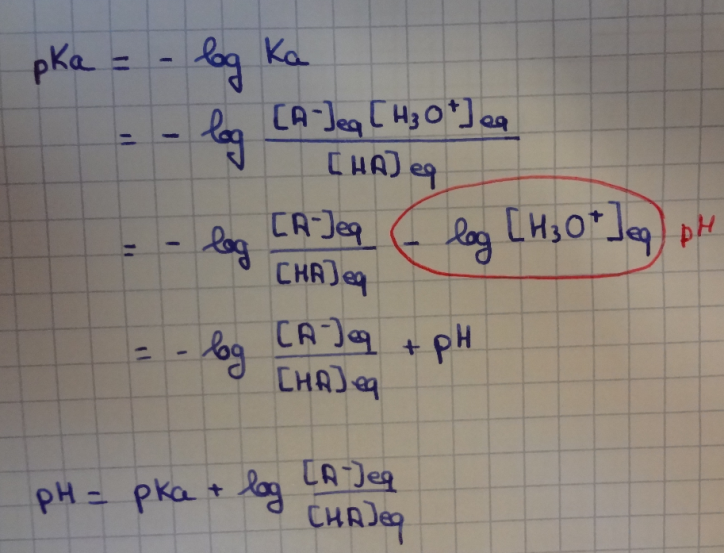 pKa = - log Ka
= - log [A⁻]eq [H₃O⁺]eq / [HA]eq
= - log [A⁻]eq / [HA]eq - log [H₃O⁺]eq pH
= - log [A⁻]eq / [HA]eq + pH
pH = pKa + log [A⁻]eq / [HA]eq